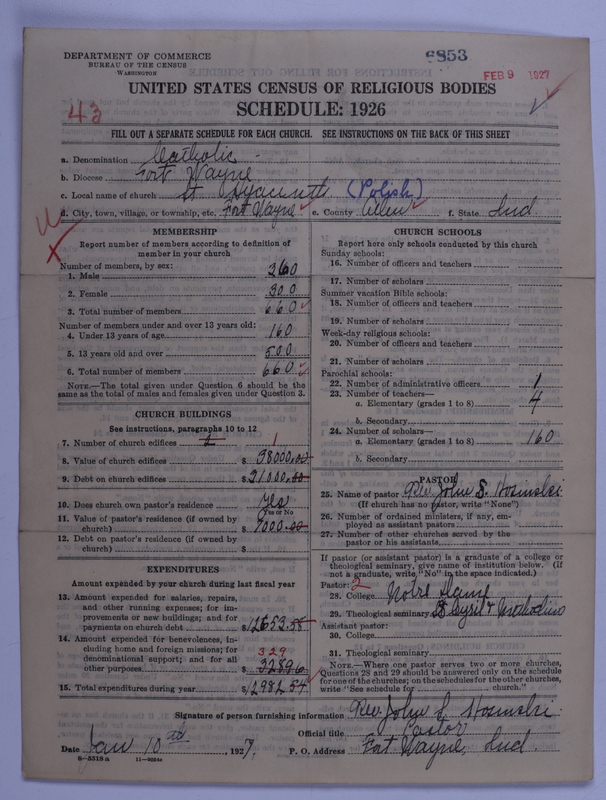 DEPARTMENT OF COMMERCE
BUREAU OF THE CENSUS
WASHINGTON
6853
FEB 9 1927
UNITED STATES CENSUS OF RELIGIOUS BODIES
SCHEDULE: 1926
43
FILL OUT A SEPARATE SCHEDULE FOR EACH CHURCH. SEE INSTRUCTIONS ON THE BACK OF THIS SHEET
a. Denomination Catholic
b. Diocese Fort Wayne
c. Local name of church St Hyacinth (Polish)
d. City, town, village, or township, etc. Fort Wayne e. County Allen f. State Ind.
MEMBERSHIP
Report number of members according to definition of
member in your church
Number of members, by sex:
1. Male 360
2. Female 300
3. Total number of members 660
Number of members under and over 13 years old:
4. Under 13 years of age 160
5. 13 years old and over 500
6. Total number of members 660
NOTE.—The total given under Question 6 should be the
same as the total of males and females given under Question 3.
CHURCH BUILDINGS
See instructions, paragraphs 10 to 12
7. Number of church edifices 1
8. Value of church edifices $ 38000.00
9. Debt on church edifices $ 31000.00
10. Does church own pastor's residence yes
Yes or No
11. Value of pastor's residence (if owned by
church) $ 7000.00
12. Debt on pastor's residence (if owned by
church) $
EXPENDITURES
Amount expended by your church during last fiscal year
13. Amount expended for salaries, repairs,
and other running expenses; for im-
provements or new buildings; and for
payments on church debt $ 12653.58
14. Amount expended for benevolences, in-
cluding home and foreign missions; for
denominational support; and for all
329
other purposes 328.96
15. Total expenditures during year $ 12982.54
CHURCH SCHOOLS
Report here only schools conducted by this church
Sunday schools:
16. Number of officers and teachers
17. Number of scholars
Summer vacation Bible schools:
18. Number of officers and teachers
19. Number of scholars
Week-day religious schools:
20. Number of officers and teachers
21. Number of scholars
Parochial schools:
22. Number of administrative officers 1
23. Number of teachers—
a. Elementary (grades 1 to 8) 4
b. Secondary
24. Number of scholars—
a. Elementary (grades 1 to 8) 160
b. Secondary
PASTOR
25. Name of pastor Rev. John S. Hosinski
(If church has no pastor, write "None")
26. Number of ordained ministers, if any, em-
ployed as assistant pastors
27. Number of other churches served by the
pastor or his assistants
If pastor (or assistant pastor) is a graduate of a college or
theological seminary, give name of institution below. (If
not a graduate, write "No" in the space indicated.)
Pastor: 2
28. College Notre Dame
29. Theological seminary St Cyril & Methodius
Assistant pastor:
30. College
31. Theological seminary
NOTE.—Where one pastor serves two or more churches,
Questions 28 and 29 should be answered only on the schedule
for one of the churches; on the schedules for the other churches,
write "See schedule for church."
Signature of person furnishing information Rev. John S. Hosinski
Official title Pastor
Date Jan 10th, 1927. P. O. Address Fort Wayne, Ind.
8—5318a 11—9084